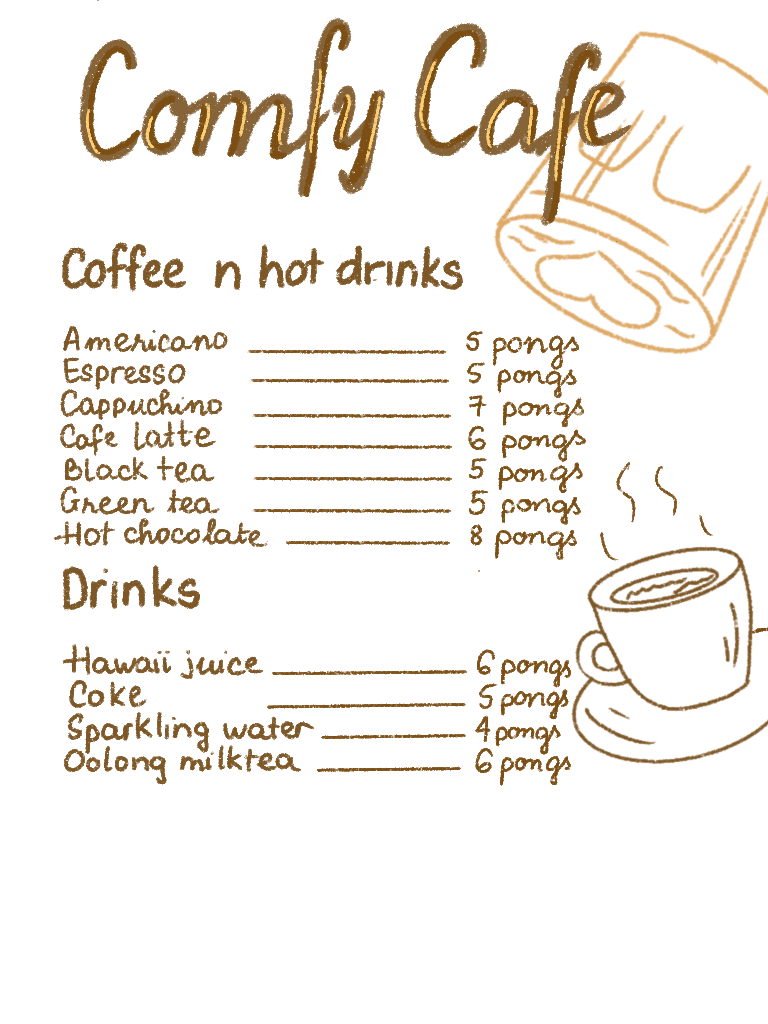 Comfy Cafe
Coffee n hot drinks
Americano 5 pongs
Espresso 5 pongs
Cappuchino 7 pongs
Cafe latte 6 pongs
Black tea 5 pongs
Green tea 5 pongs
Hot chocolate 8 pongs
Drinks
Hawaii juice 6 pongs
Coke 5 pongs
Sparkling water 4 pongs
Oolong milktea 6 pongs